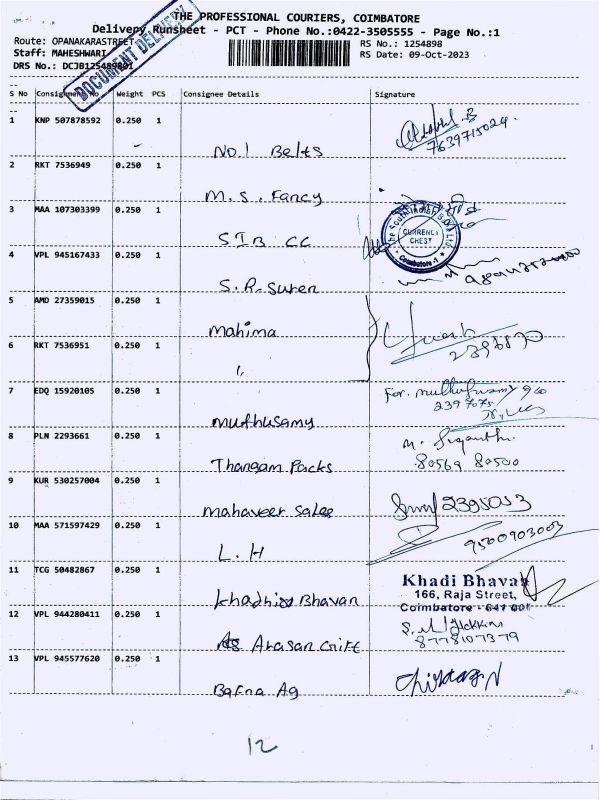 THE PROFESSIONAL COURIERS, COIMBATORE
Delivery Runsheet - PCT - Phone No.:0422-3505555 - Page No.:1
Route: OPANAKARASTREET
RS No.: 1254898
Staff: MAHESHWARI
RS Date: 09-Oct-2023
DRS No.: DCJB125489801
DOCUMENT DELIVERY
S No Consignment No Weight PCS Consignee Details Signature
1 KNP 507878592 0.250 1
No.1 Belts
7639715024
2 RKT 7536949 0.250 1
M.S. Fancy
3 MAA 107303399 0.250 1
SIB CC
The South Indian Bank Ltd.
CURRENCY
CHEST
Coimbatore-1
4 VPL 945167433 0.250 1
S.R. Suren
5 AMD 27359015 0.250 1
Mahima
6 RKT 7536951 0.250 1
"
7 EDQ 15920105 0.250 1
muthusamy
For. muthuswamy
2397075
8 PLN 2293661 0.250 1
Thangam Packs
80569 80500
9 KUR 530257004 0.250 1
mahaveer sales
2395053
10 MAA 571597429 0.250 1
L. H
9500903003
11 TCG 50482867 0.250 1
khadhi Bhavan
Khadi Bhavan
166, Raja Street,
Coimbatore - 641 001
12 VPL 944280411 0.250 1
Arasan Gift
8778107379
13 VPL 945577620 0.250 1
Bafna Ag
12